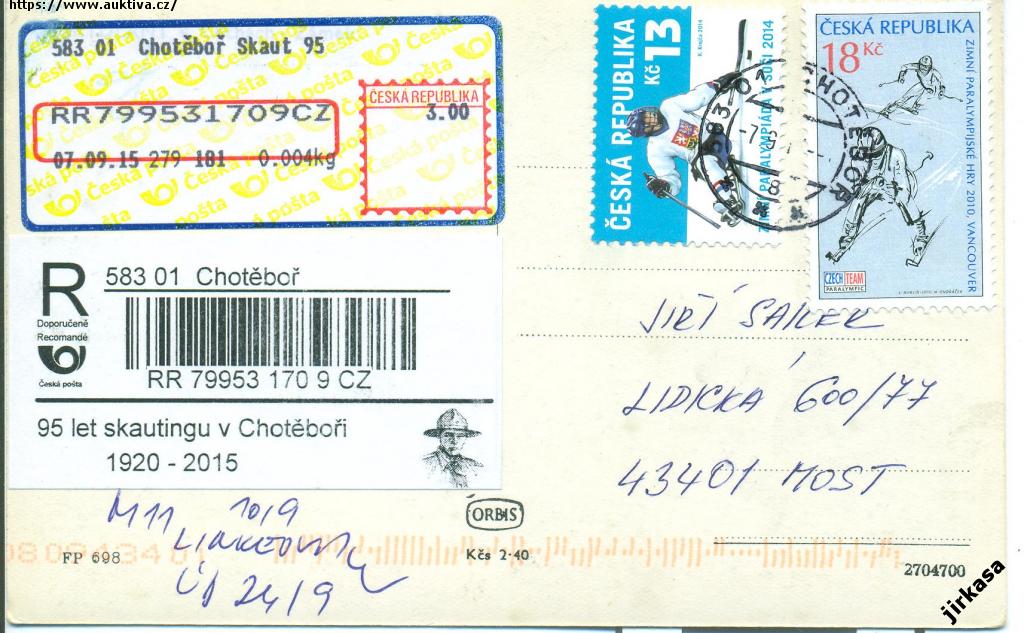 https://www.auktiva.cz/
583 01 Chotěboř Skaut 95
RR799531709CZ
07.09.15 279 181 0.004kg
ČESKÁ REPUBLIKA
3.00
Česká pošta
R
Doporučeně
Recomandé
Česká pošta
583 01 Chotěboř
RR 79953 170 9 CZ
95 let skautingu v Chotěboři
1920 - 2015
ČESKÁ REPUBLIKA
Kč 13
ZIMNÍ PARALYMPIÁDA V SOČI 2014
ČESKÁ REPUBLIKA
18 Kč
ZIMNÍ PARALYMPIJSKÉ HRY 2010, VANCOUVER
CZECH TEAM
PARALYMPIC
CHOTĚBOŘ
583 02
JIŘÍ
LIDICKÁ 600/77
43401 MOST
M11 10/9
24/9
ORBIS
FP 698
Kčs 2·40
2704700
jirkasa